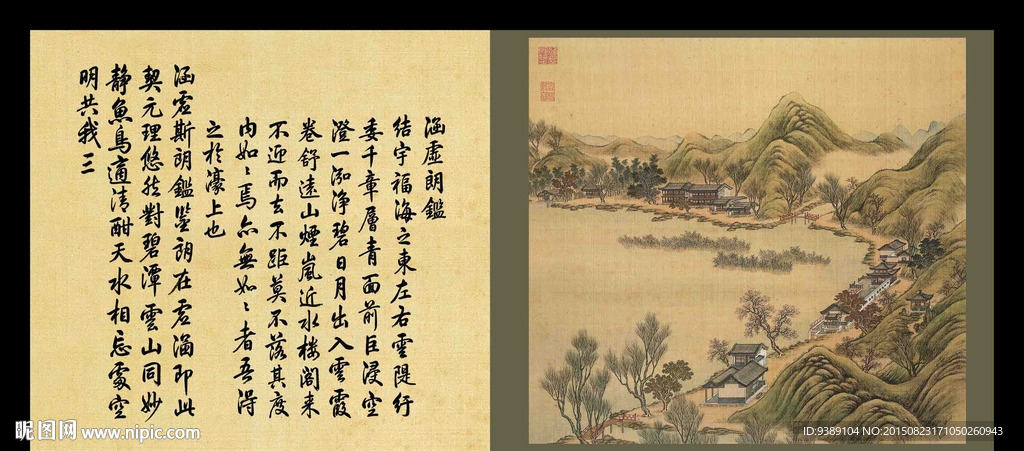 涵虛朗鑑
結宇福海之東左右雲隄紆
委千章層青面前巨浸空
澄一泓淨碧日月出入雲霞
卷舒遠山煙嵐近水樓閣來
不迎而去不距莫不落其度
内如〻焉亦無如〻者吾得
之於濠上也
涵虛斯朗鑑鑒朗在虛涵即此
契元理悠然對碧潭雲山同妙
靜魚鳥適清酣天水相忘處空
明共我三
昵图网 www.nipic.com
ID:9389104 NO:20150823171050260943